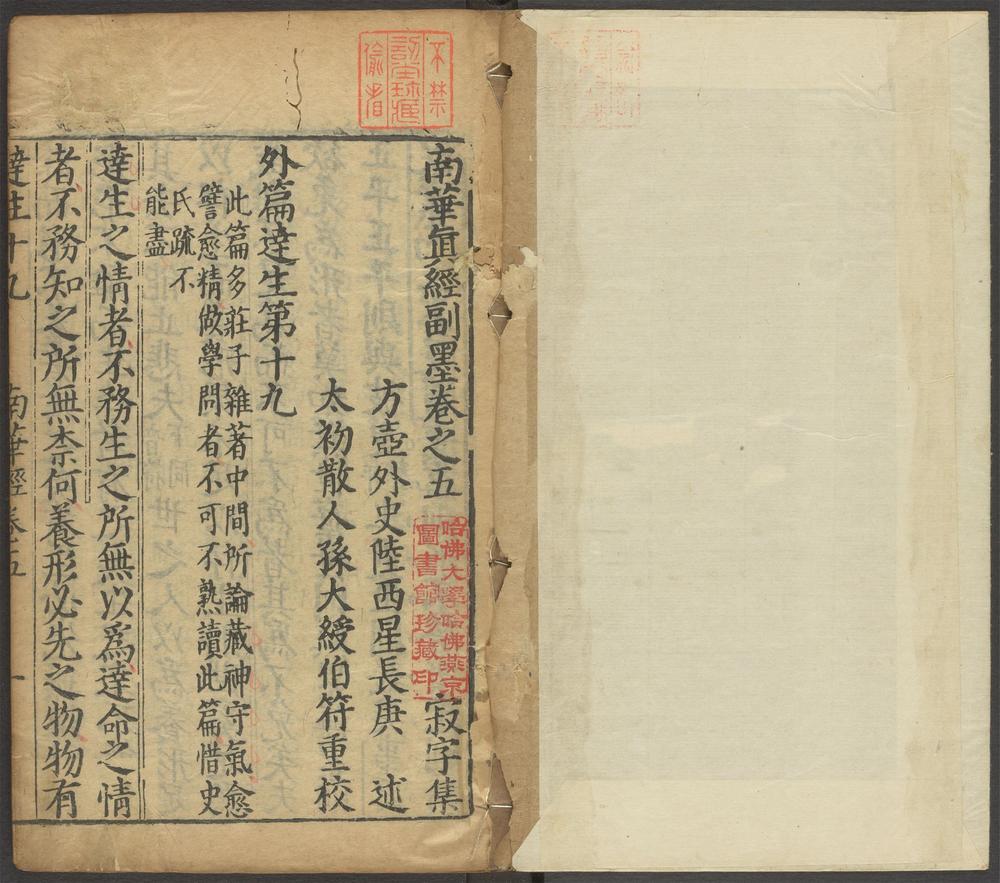 南華真經副墨卷之五 寂字集
方壺外史陸西星長庚 述
太初散人孫大綬伯符重校
外篇達生第十九
此篇多莊子雜著中間所論藏神守氣愈
譬愈精做學問者不可不熟讀此篇惜史
氏疏不
能盡
達生之情者不務生之所無以爲達命之情
者不務知之所無柰何養形必先之物物有
達生十九 南華經卷五 一
不禁
俞者
哈佛大學哈佛燕京
圖書館珍藏印